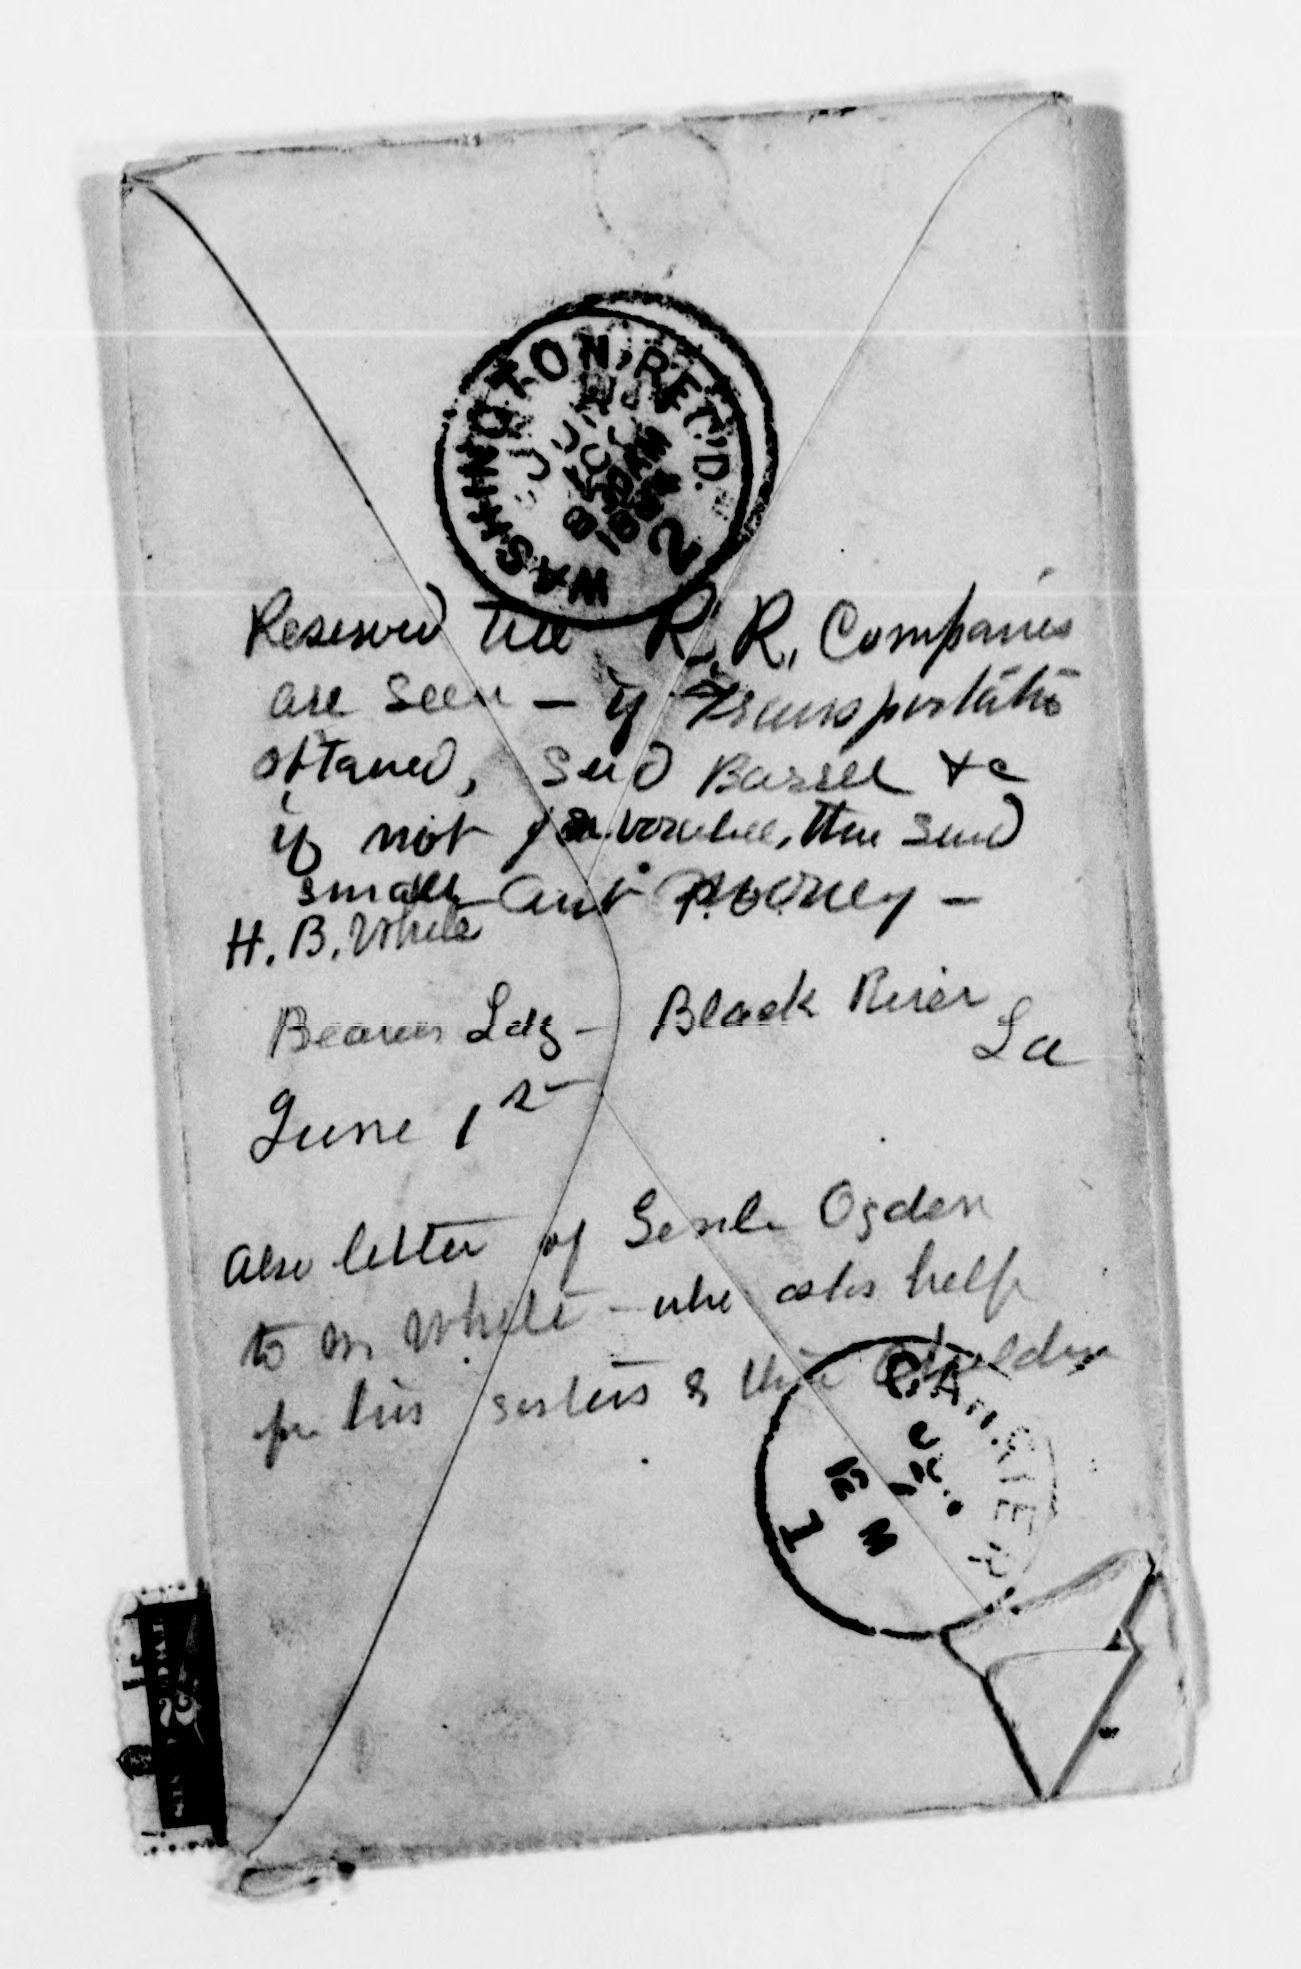 WASHINGTON, REC'D.
2
Reserved till R. R. Companies
are seen – if Transportatio
obtained, send Barrel &c
if not favorable, then send
small amt money –
H. B. White
Beaver Ldg – Black River
La
June 1st
Also letter of Ogden
to Mr White – who asks help
for his sisters & their children
CARRIER
12 M
1